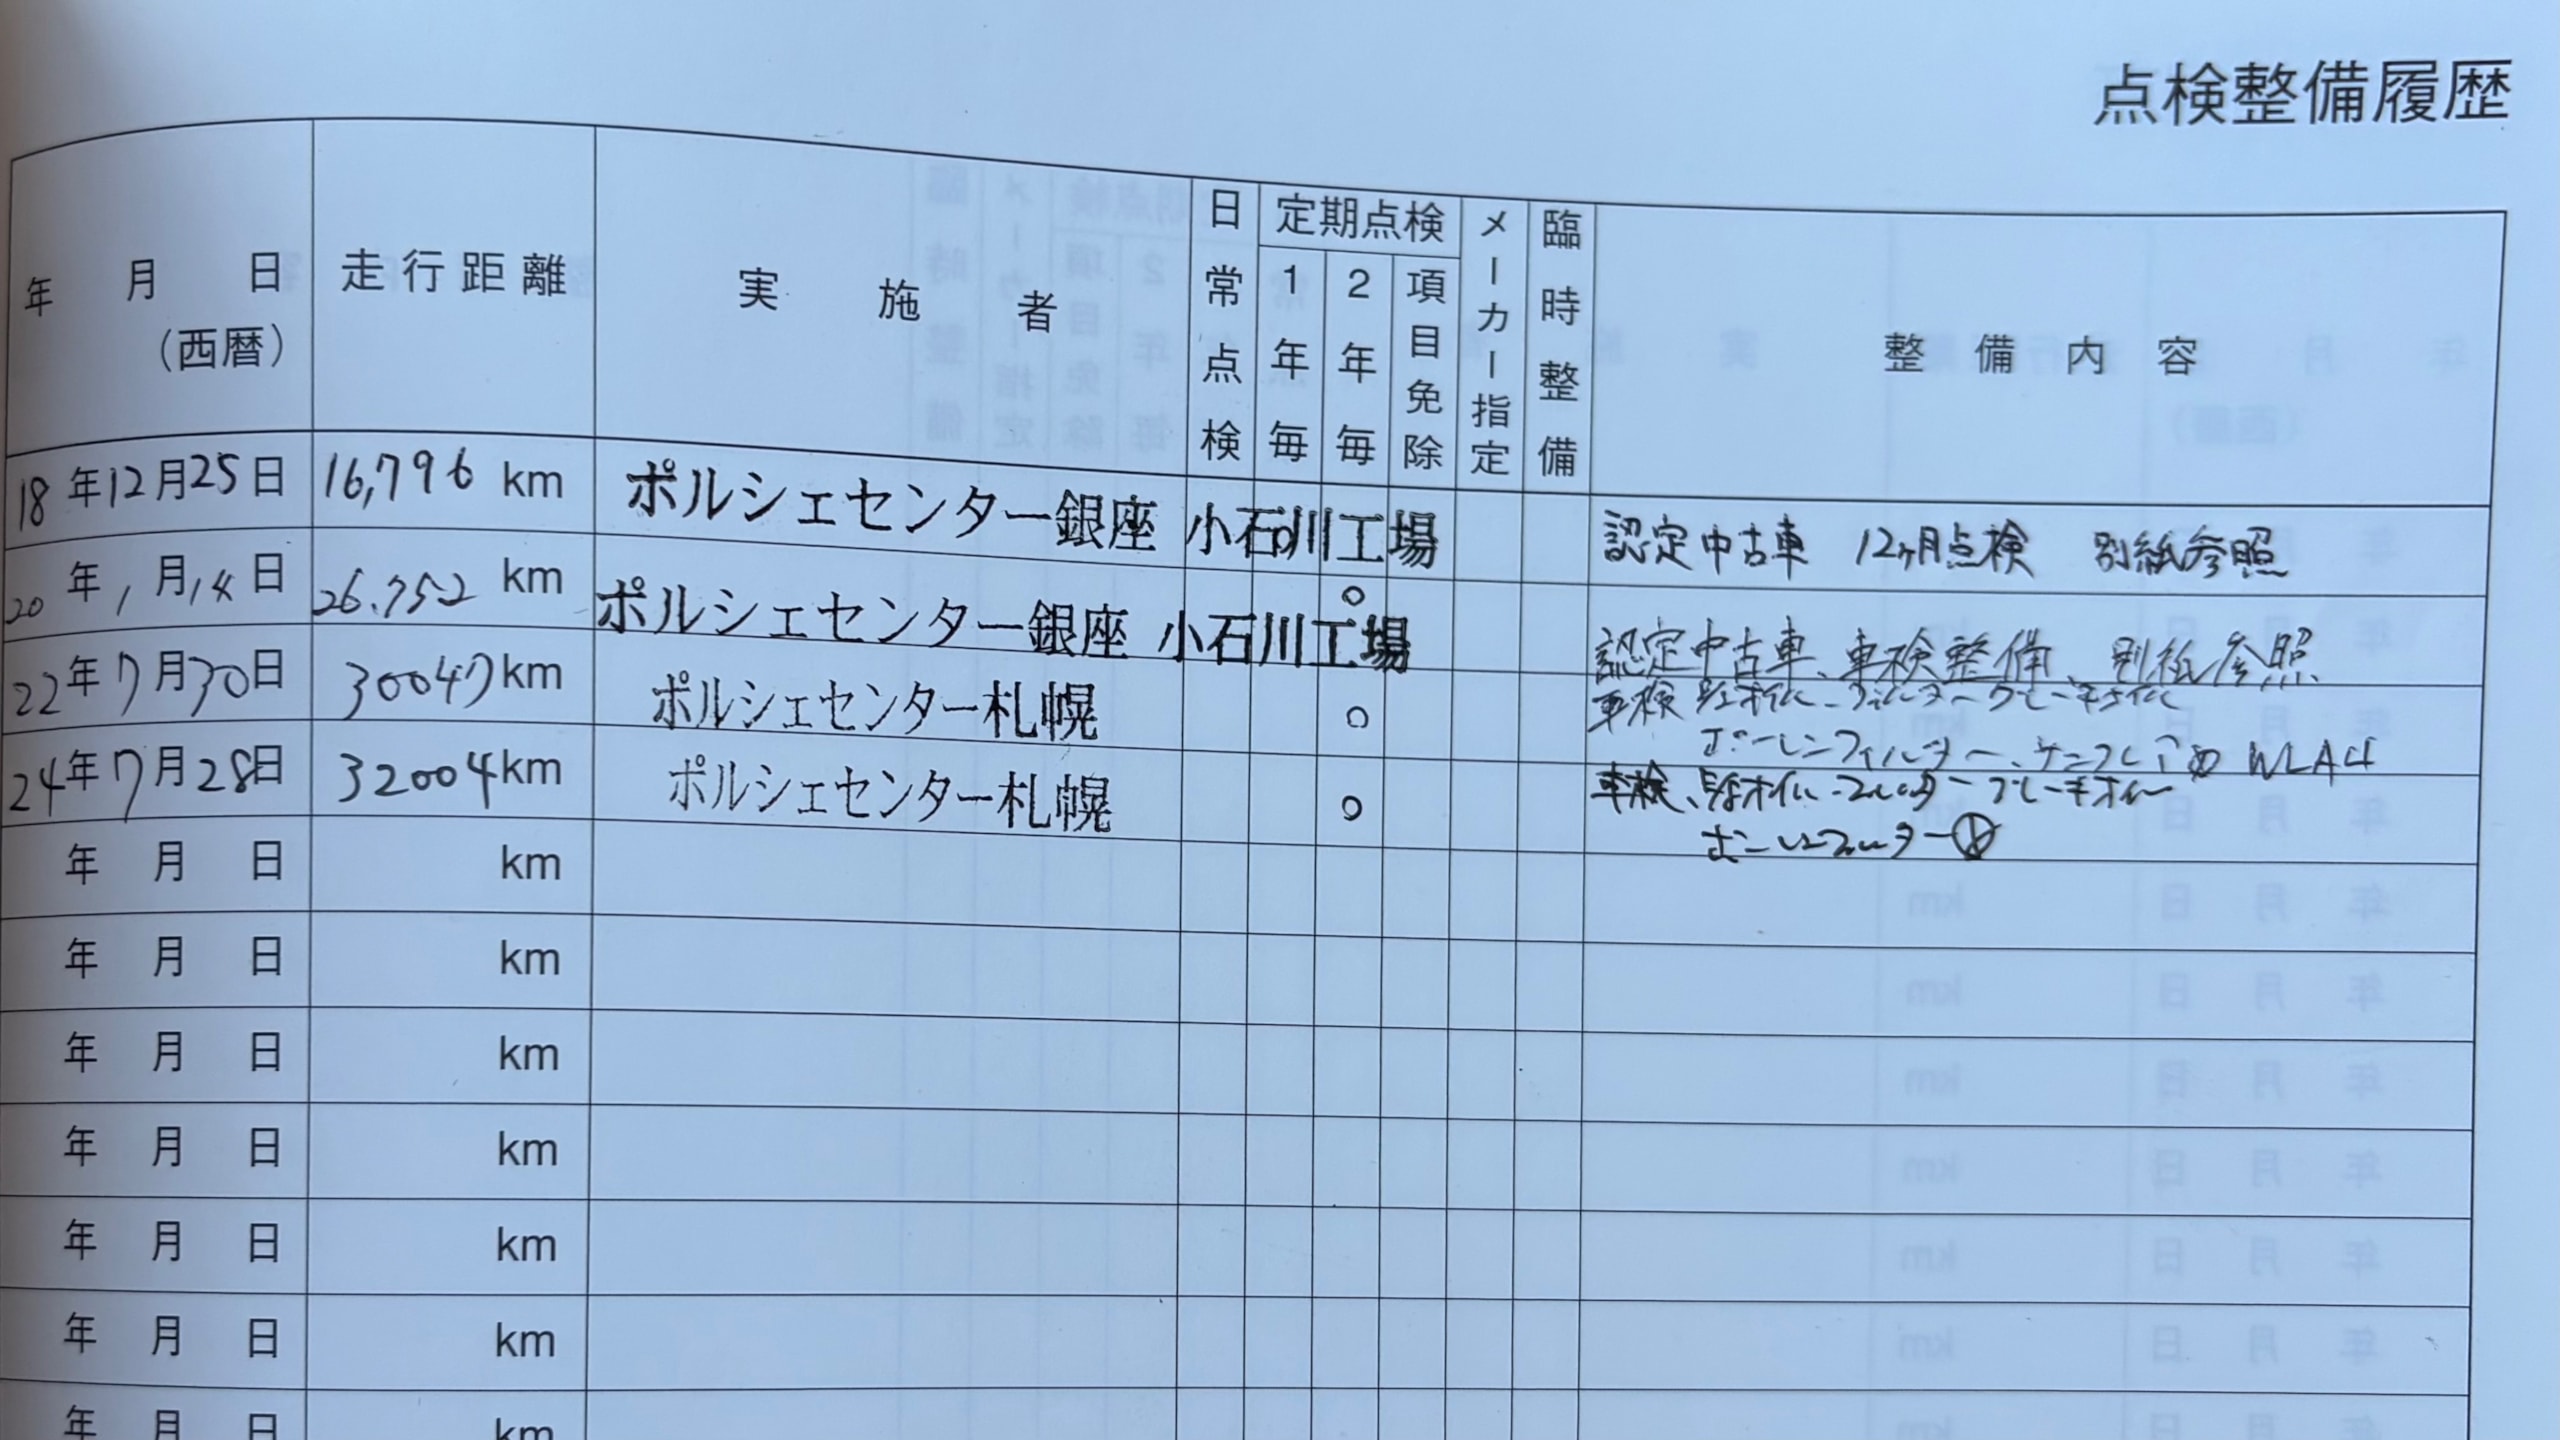 点検整備履歴
年 月 日 (西暦) 走行距離 実施者 日常点検 定期点検 1年毎 2年毎 項目免除 メーカー指定 臨時整備 整備内容
18年12月25日 16,796 km ポルシェセンター銀座 小石川工場 認定中古車 12ヶ月点検 別紙参照
20年1月14日 26,752 km ポルシェセンター銀座 小石川工場 ○ 認定中古車、車検整備、別紙参照
22年7月30日 30047km ポルシェセンター札幌 ○ 車検 オイル フィルター ブレーキオイル
ポーレンフィルター、 WLA4
24年7月28日 32004km ポルシェセンター札幌 ○ 車検、 オイル フィルター ブレーキオイル
年 月 日 km
年 月 日 km
年 月 日 km
年 月 日 km
年 月 日 km
年 月 日 km
年 月 日 km